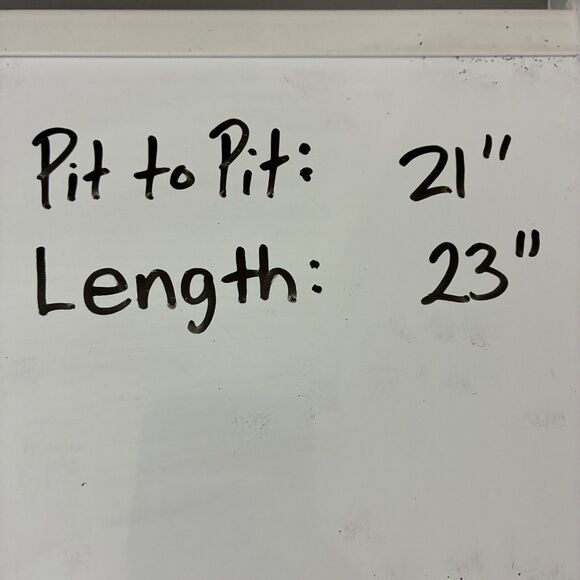 Pit to Pit: 21"
Length: 23"